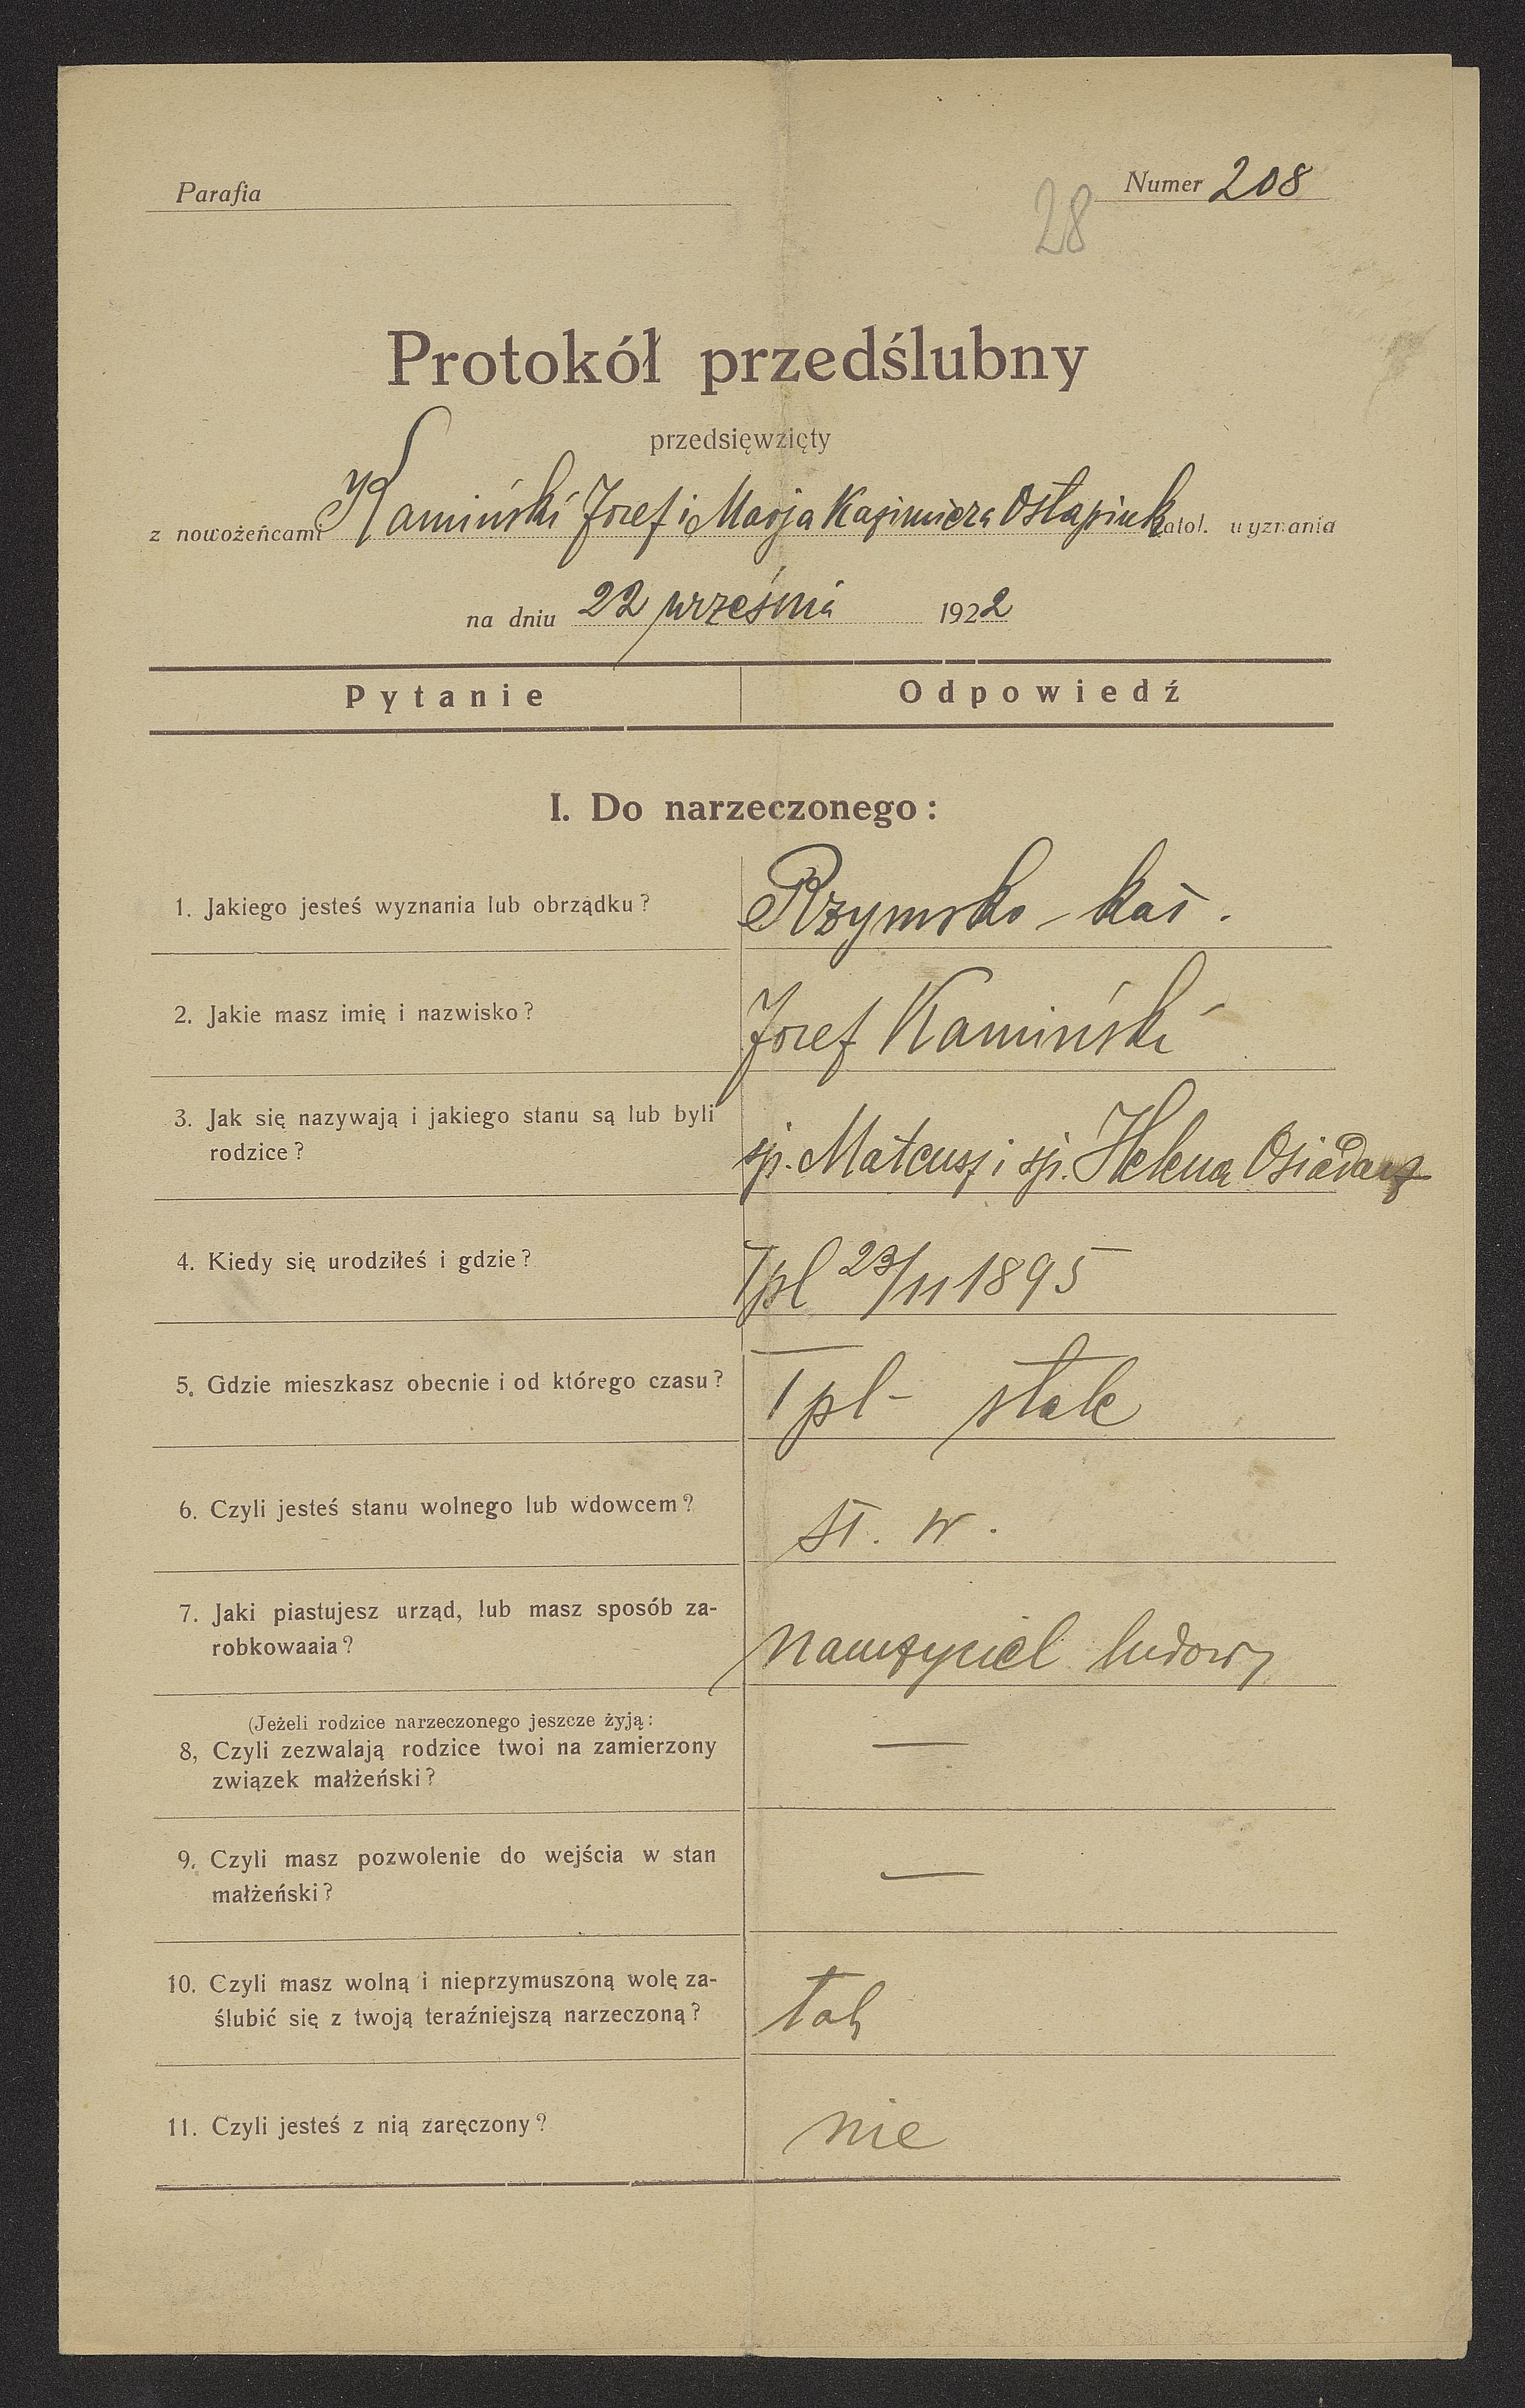 Parafia
Numer 208
28
Protokół przedślubny
przedsięwzięty
z nowożeńcami Kamiński Józef i Marja Kazimiera Ostapiuk katol. wyznania
na dniu 22 września 1922
Pytanie Odpowiedź
I. Do narzeczonego:
1. Jakiego jesteś wyznania lub obrządku? Rzymsko-kat.
2. Jakie masz imię i nazwisko? Józef Kamiński
3. Jak się nazywają i jakiego stanu są lub byli
rodzice? śp. Mateusz i śp. Helena
4. Kiedy się urodziłeś i gdzie? Tpl 23/11 1895
5. Gdzie mieszkasz obecnie i od którego czasu? Tpl - stale
6. Czyli jesteś stanu wolnego lub wdowcem? st. w.
7. Jaki piastujesz urząd, lub masz sposób za-
robkowaaia? nauczyciel ludowy
(Jeżeli rodzice narzeczonego jeszcze żyją:
8, Czyli zezwalają rodzice twoi na zamierzony —
związek małżeński?
9. Czyli masz pozwolenie do wejścia w stan —
małżeński?
10. Czyli masz wolną i nieprzymuszoną wolę za-
ślubić się z twoją teraźniejszą narzeczoną? tak
11. Czyli jesteś z nią zaręczony? nie